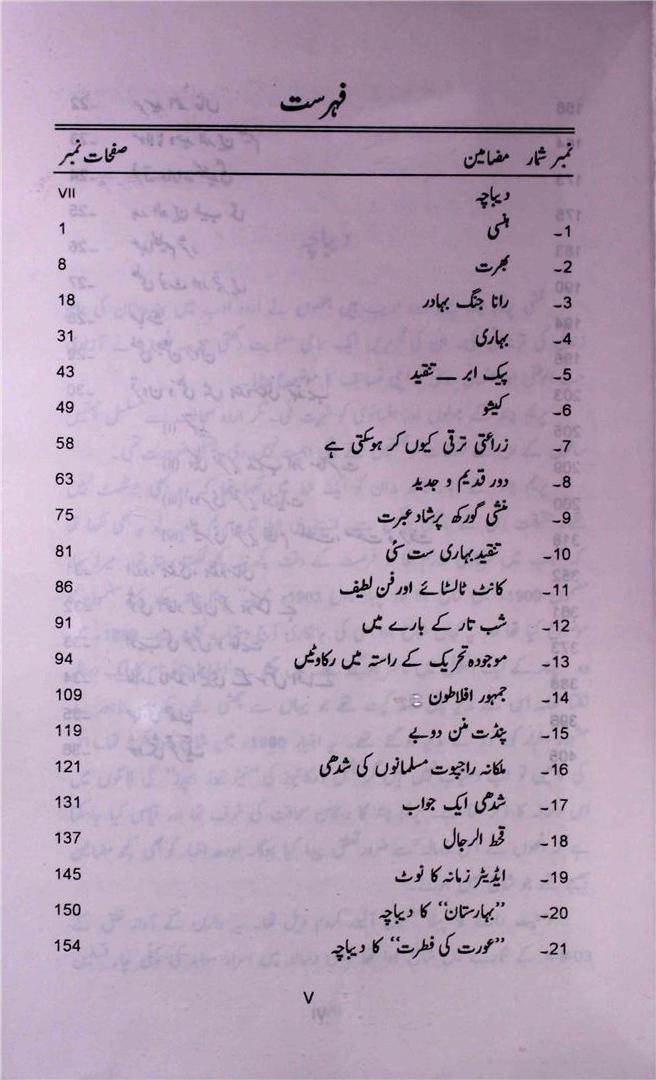 فہرست
نمبر شمار مضامین صفحات نمبر
دیباچہ VII
1۔ ہنسی 1
2۔ بھرت 8
3۔ رانا جنگ بہادر 18
4۔ بہاری 31
5۔ پیک ابر — تنقید 43
6۔ کیشو 49
7۔ زراعتی ترقی کیوں کر ہوسکتی ہے 58
8۔ دور قدیم و جدید 63
9۔ منشی گورکھ پرشاد عبرت 75
10۔ تنقید بہاری ست سئی 81
11۔ کانٹ ٹالسٹائے اور فن لطیف 86
12۔ شب تار کے بارے میں 91
13۔ موجودہ تحریک کے راستہ میں رکاوٹیں 94
14۔ جمہور افلاطون 109
15۔ پنڈت منن دوبے 119
16۔ ملکانہ راجپوت مسلمانوں کی شدھی 121
17۔ شدھی ایک جواب 131
18۔ قحط الرجال 137
19۔ ایڈیٹر زمانہ کا نوٹ 145
20۔ ”بہارستان“ کا دیباچہ 150
21۔ ”عورت کی فطرت“ کا دیباچہ 154
V